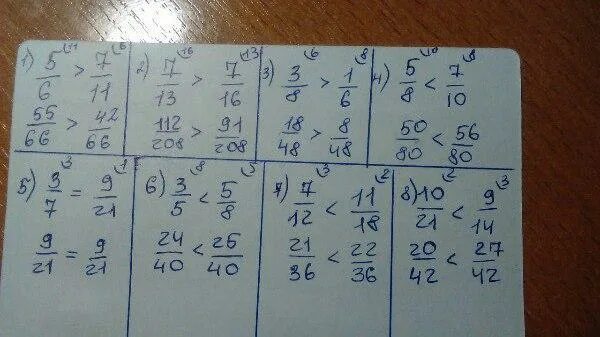 1) 5/6 (11 > 7/11 (6
55/66 > 42/66
2) 7/13 (16 > 7/16 (13
112/208 > 91/208
3) 3/8 (6 > 1/6 (8
18/48 > 8/48
4) 5/8 (10 < 7/10 (8
50/80 < 56/80
5) 3/7 (3 = 9/21 (1
9/21 = 9/21
6) 3/5 (8 < 5/8 (5
24/40 < 25/40
7) 7/12 (3 < 11/18 (2
21/36 < 22/36
8) 10/21 (2 < 9/14 (3
20/42 < 27/42